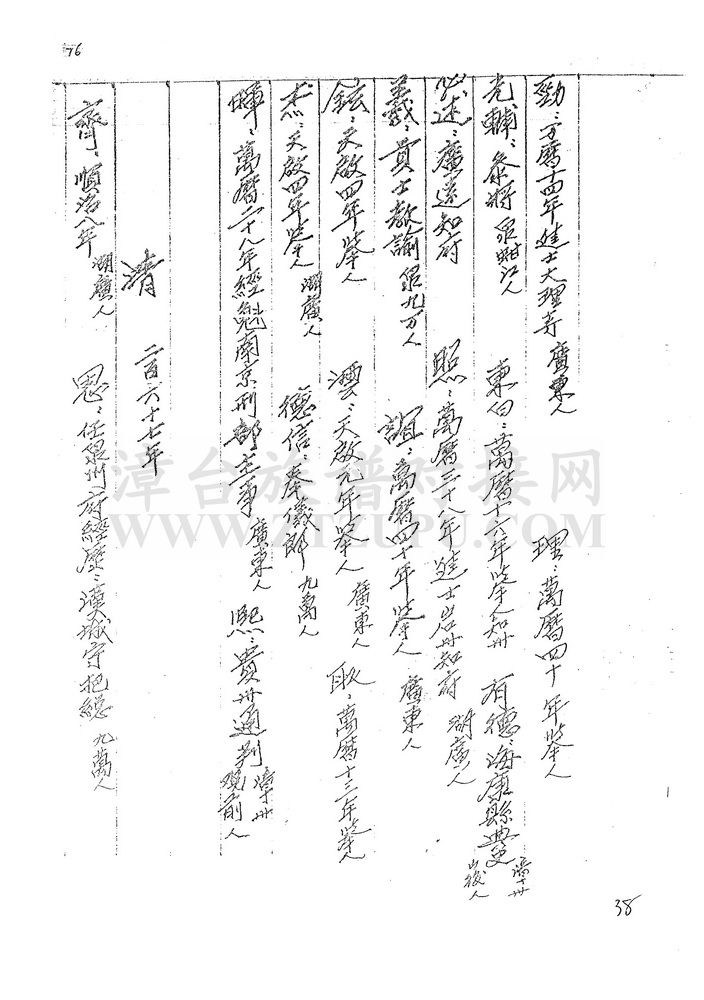 76
勁：万曆十四年進士大理寺 廣東人 理：萬曆四十年舉人
光輔：叅將 泉晋江人 東白：萬曆十六年舉人知州 有德：海康縣典史 漳州山後人
必述：廣遠知府 照：萬曆三十八年進士岩州知府 湖廣人
義：貢士教諭 泉九万人 誼：萬曆四十年舉人 廣東人
鉉：天啟四年舉人 澐：天啟元年舉人 廣東人 耿：萬曆十三年舉人
杰：天啟四年舉人 湖廣人 德信：奉儀郎 九萬人
暉：萬曆二十八年經魁南京刑部主事 廣東人 熙：貴州通判 漳州观前人
清 二百六十七年
齊：順治八年 湖廣人 思：任泉州府經歷：漢城守把總 九萬人
漳台族谱对接网
WWW.ZTZUPU.COM
38